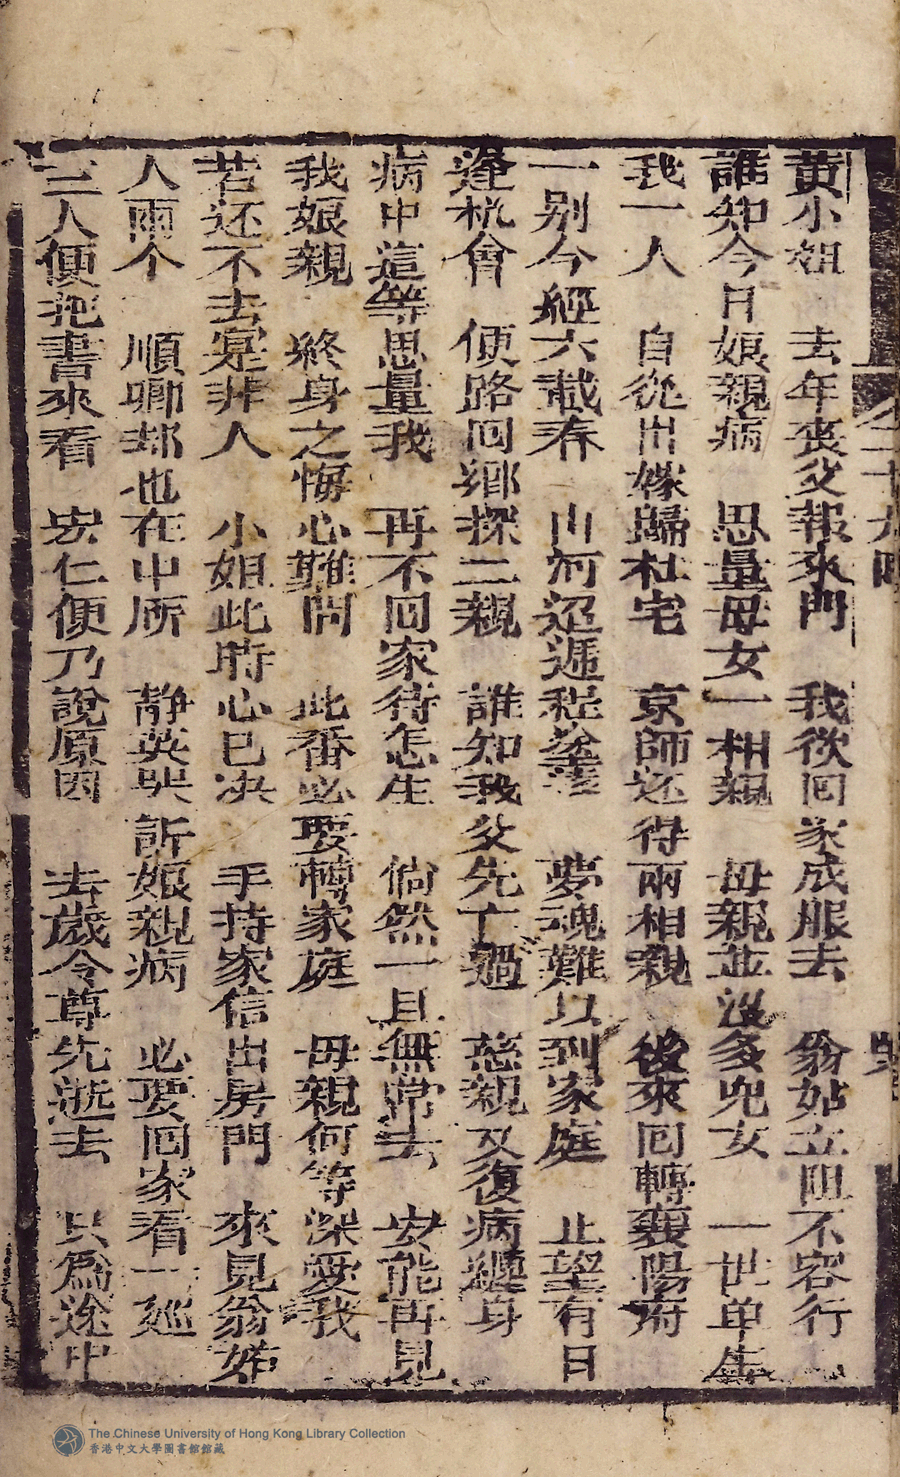 黄小姐　去年丧父報來門　我欲回家成服去　翁姑立阻不容行
誰知今日娘親病　思量母女一相親　母親並沒多兒女　一世单生
我一人　自從出嫁歸杜宅　京師还得兩相親　後來回轉襄陽府
一别今經六載春　山河迢遞程途隔　夢魂難以到家庭　止望有日
逢机會　便路回鄉探二親　誰知我父先亡過　慈親又復病纏身
病中這等思量我　再不回家待怎生　倘然一旦無常去　安能再見
我娘親　終身之悔心難問　此番必要轉家庭　母親何等深愛我
若还不去寔非人　小姐此時心已决　手持家信出房門　來見翁姑
人兩个　順卿却也在中所　静英哭訴娘親病　必要回家看一廵
三人便把書來看　宏仁便乃說原因　去歲令尊先逝去　只為途中
The Chinese University of Hong Kong Library Collection
香港中文大學圖書館館藏